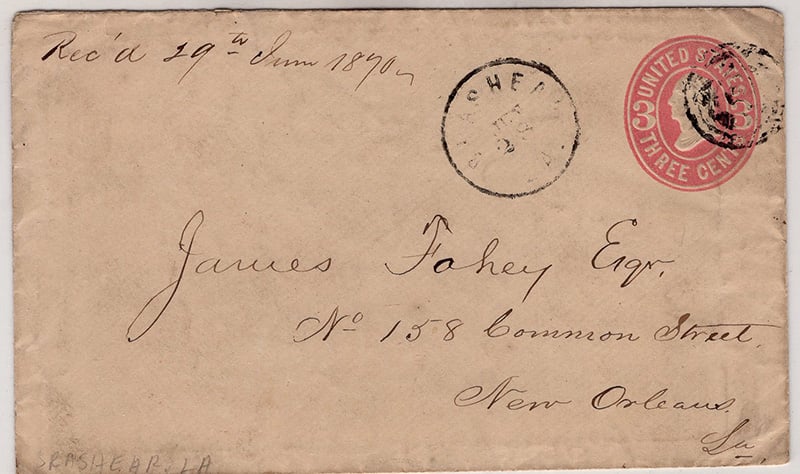 Rec'd 29th June 1870
BRASHEAR LA.
UNITED STATES
3 3
THREE CENTS
James Fahey Esqr.
No 158 Common Street.
New Orleans.
La
BRASHEAR, LA